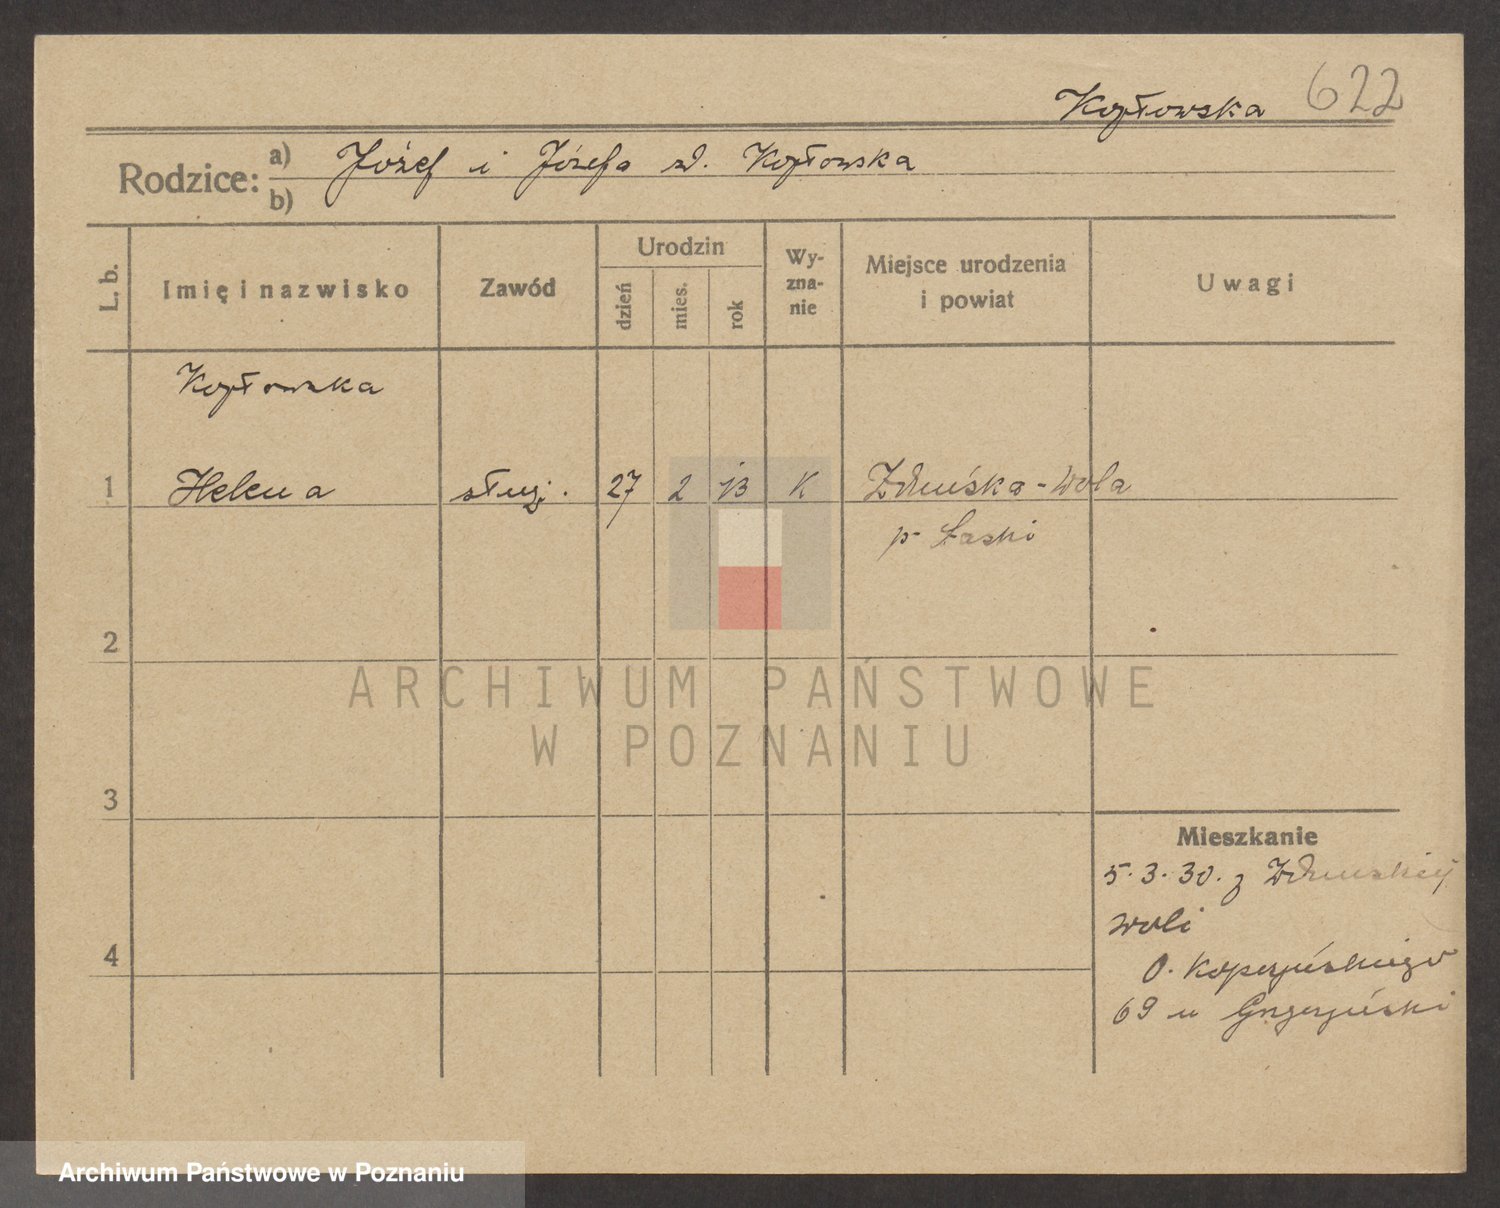 Kopłowska 622
Rodzice: a) Józef i Józefa zd. Kopłowska
b)
L. b. Imię i nazwisko Zawód Urodzin dzień mies. rok Wy-zna-nie Miejsce urodzenia i powiat Uwagi
Kopłowska
1 Helena służ. 27 2 13 K Zduńska-Wola
p. Łaski
2
ARCHIWUM PAŃSTWOWE
W POZNANIU
3
Mieszkanie
5.3.30. z Zduńskiej
woli
4
O. Kopczyńskiego
69 u
Archiwum Państwowe w Poznaniu